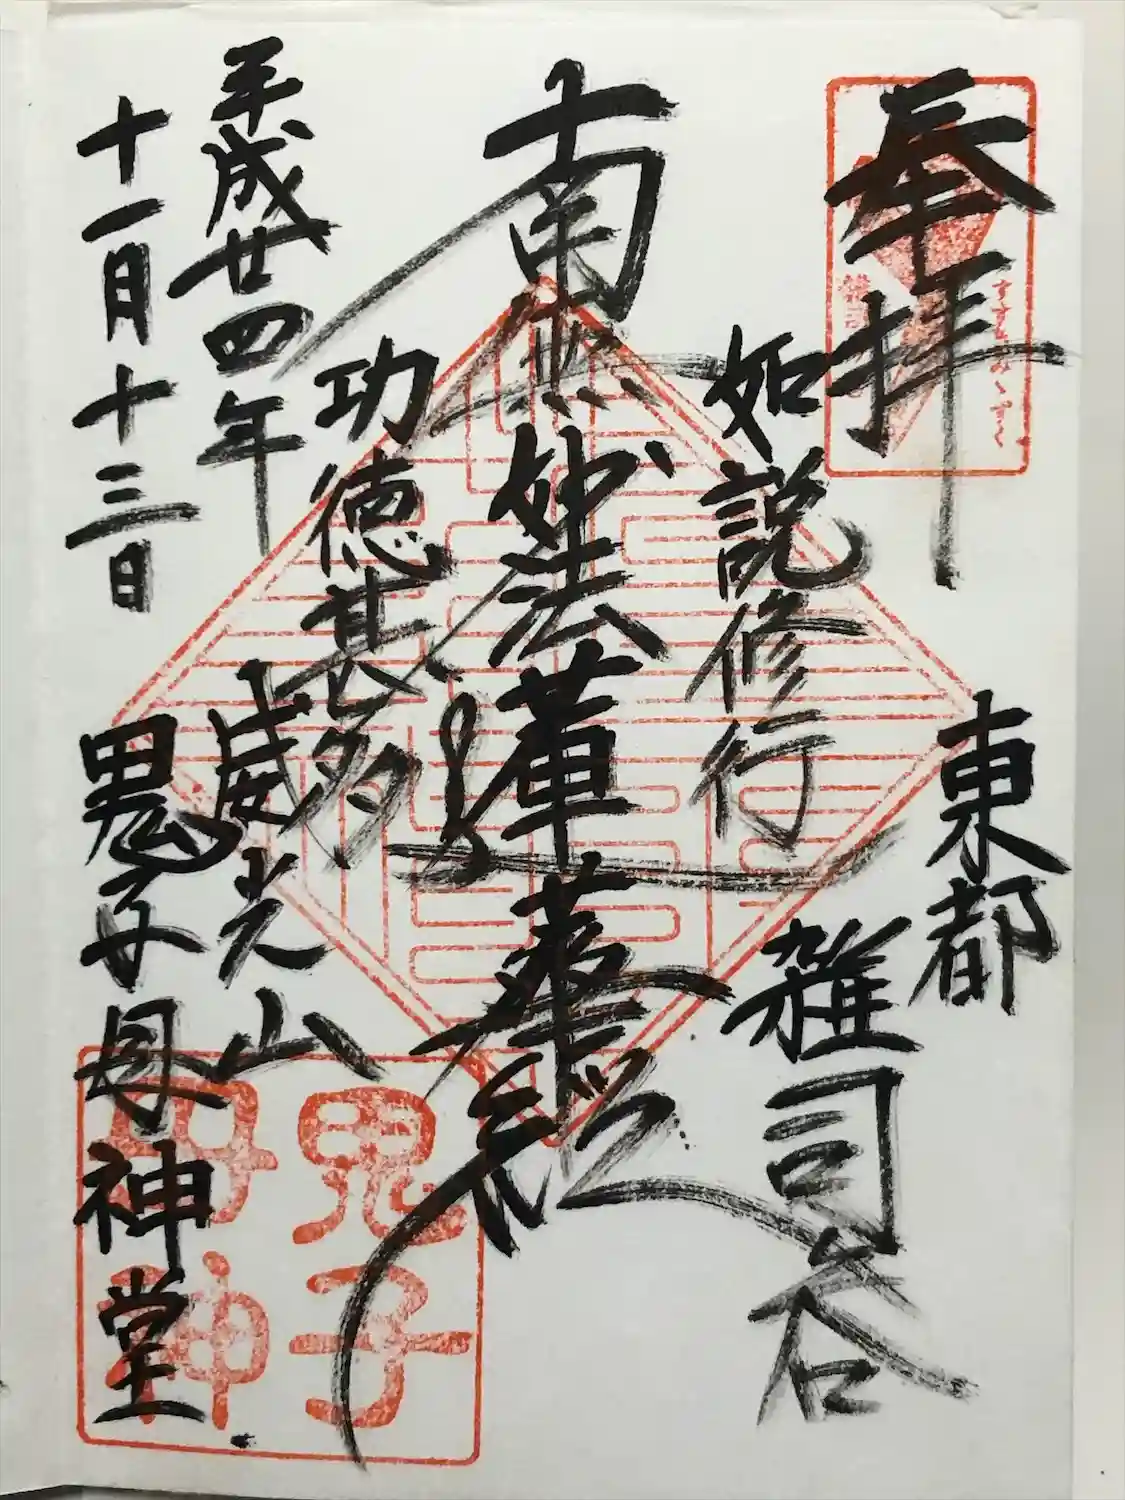 奉拝
東都
雑司谷
如説修行
南無妙法蓮華経
功徳甚多
平成廿四年
十一月十三日
威光山
鬼子母神堂
鬼子
母神